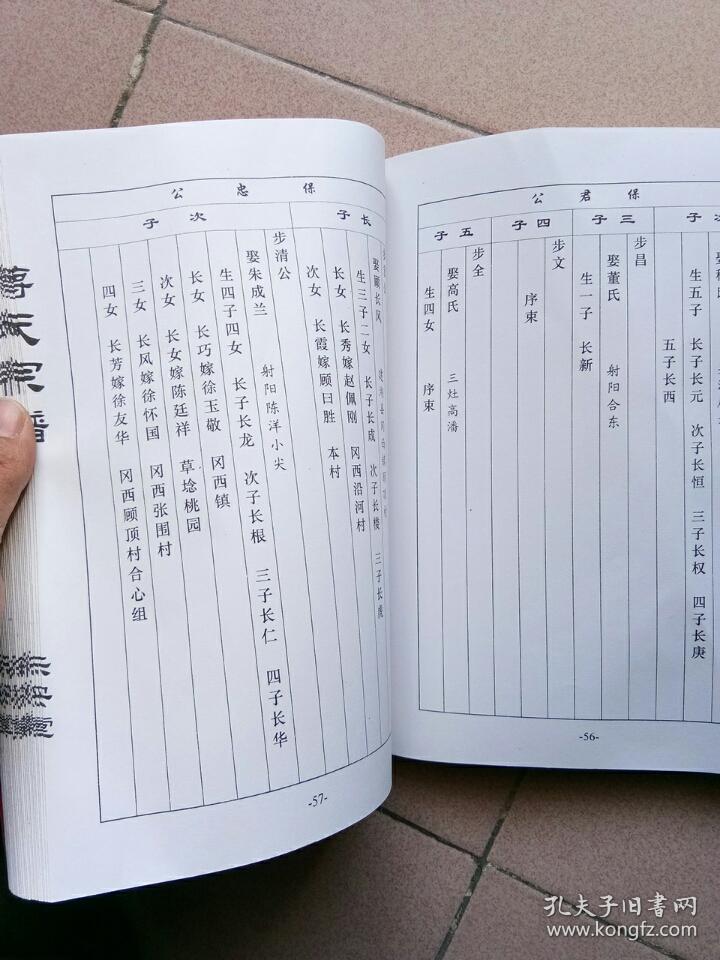 保君公
次子
生五子 长子长元 次子长恒 三子长权 四子长庚
五子长西
三子
步昌
娶董氏 射阳合东
生一子 长新
四子
步文
序東
五子
步全
娶高氏 三灶高潘
生四女 序東
-56-
保忠公
长子
娶顾长风
生三子二女 长子长成 次子长楼 三子长虎
长女 长秀嫁赵佩刚 冈西沿河村
次女 长霞嫁顾曰胜 本村
次子
步清公
娶朱成兰 射阳陈洋小尖
生四子四女 长子长龙 次子长根 三子长仁 四子长华
长女 长巧嫁徐玉敬 冈西镇
次女 长女嫁陈廷祥 草埝桃园
三女 长风嫁徐怀国 冈西张围村
四女 长芳嫁徐友华 冈西顾顶村合心组
-57-
孔夫子旧书网
www.kongfz.com